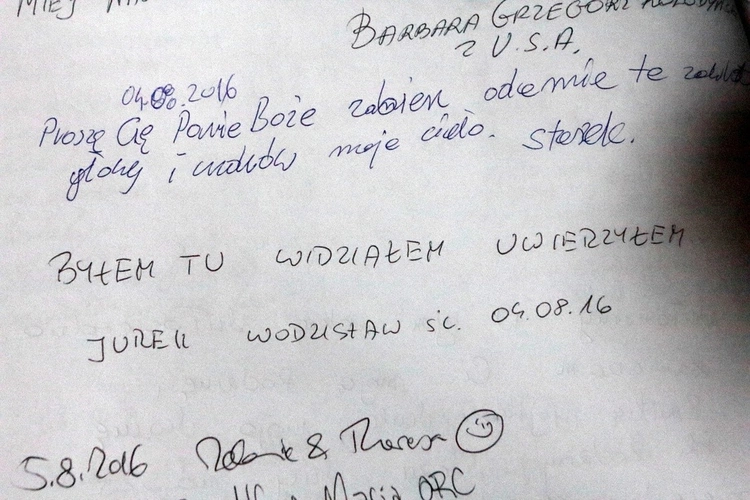 MIEJ
BARBARA GRZEGORZ
Z U.S.A.
04.08.2016
Proszę Cię Panie Boże zabierz odemnie te
głowy i uzdrów moje ciało. Staszek.
BYŁEM TU WIDZIAŁEM UWIERZYŁEM
JUREK WODZISŁAW ŚL. 04.08.16
5.8.2016 & Theresa